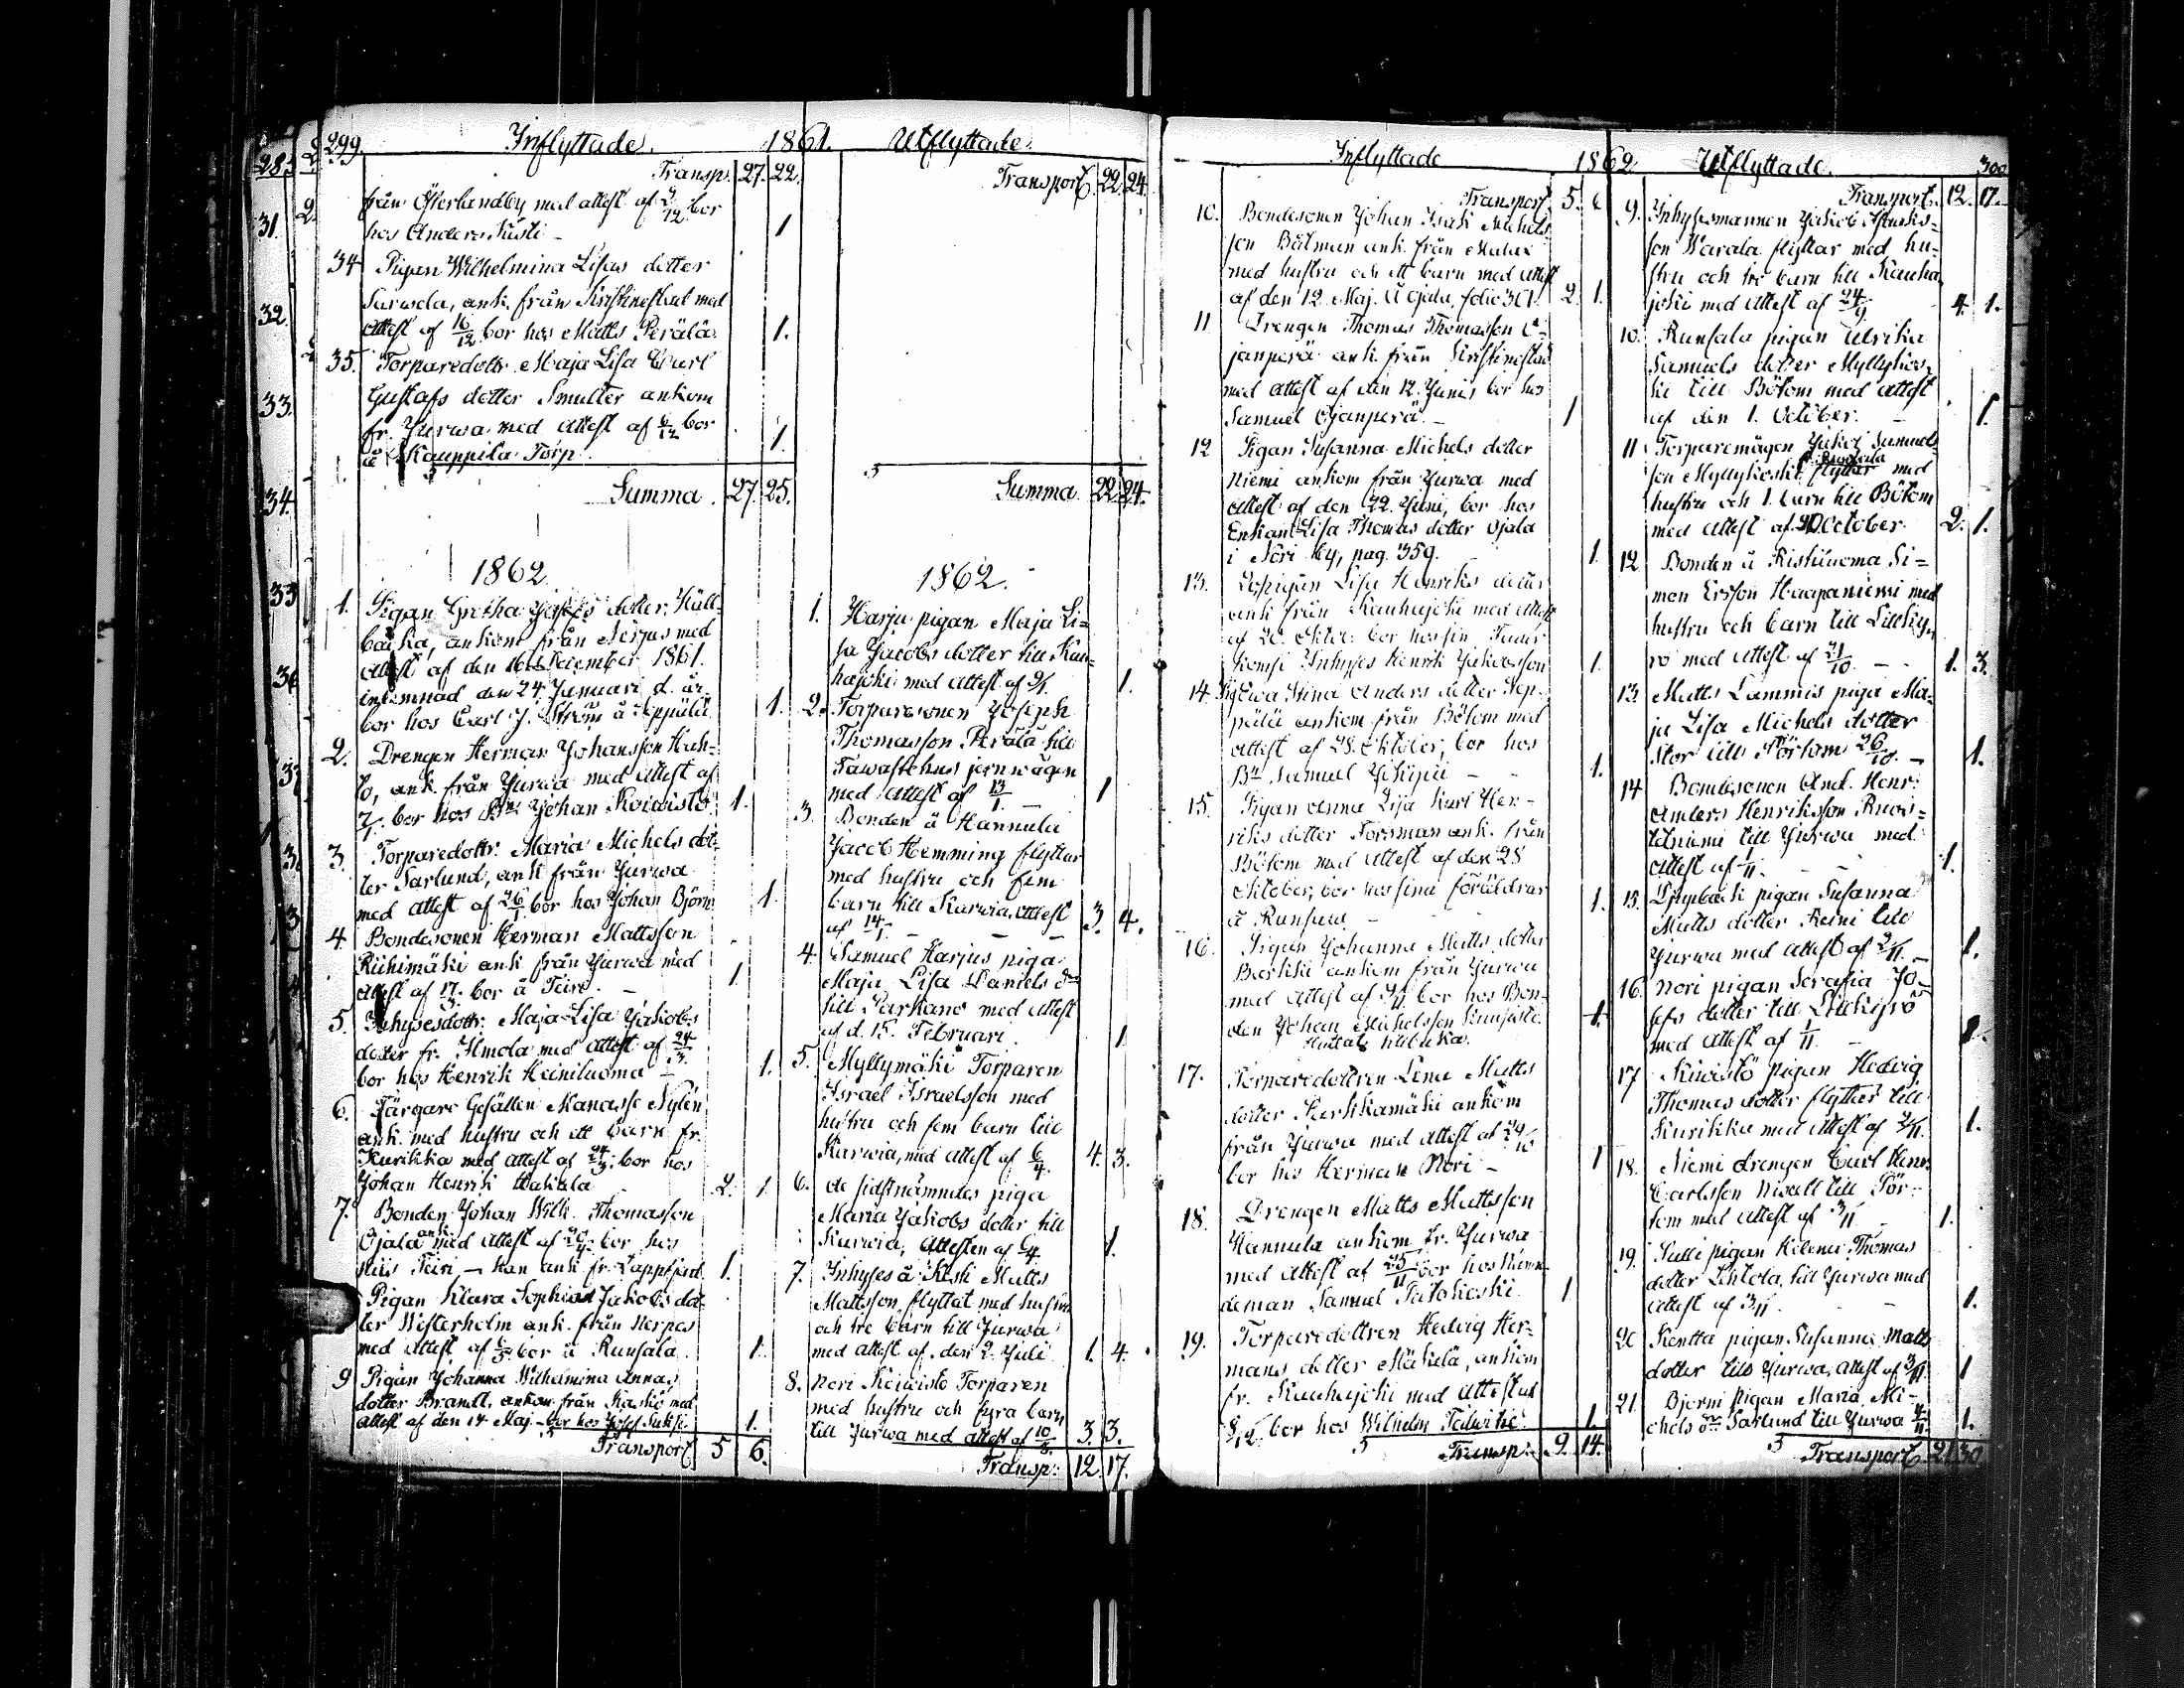 299. Inflyttade. 1861. Utflyttade.
Transp. 27. 22.
från Österlandby med attest af 9/12 bor
hos Anders Justi - 1
34 Pigan Wilhelmina Lisas dotter
Sarwela, ank. från Kristinestad med
attest af 16/12 bor hos Matts Perälä. 1.
35. Torparedottr. Maja Lisa Carl
Gustafs dotter Smulter ankom
fr. Jurwa med attest af 6/12 bor
å Kauppila Torp. 1.
Summa. 27. 25.
1862.
1. Pigan Gretha dotter
backa, ankom från Nerpes med
attest af den 16 December 1861.
inlemnad den 24. Januari d. år.
bor hos Carl J. Ström å Seppälä 1.
2. Drengen Herman Johansson
ank. från Jurwa med attest af
7/1. bor hos Bn Johan Koiwisto 1.
3. Torparedottr. Maria Michels dot-
ter Sarlund, ank från Jurwa
med attest af 26/1 bor hos Johan Björn 1.
4. Bondesonen Herman Mattsson
Riihimäki ank från Jurwa med
attest af 17/3. bor å Teiro. - 1.
5. Inhysesdottr. Maja Lisa Jakobs
dotter fr. Ilmola med attest af 24/3.
bor hos Henrik Heiniluoma - 1.
6. Färgare Gesällen Manasse Nylén
ank. med hustru och ett barn fr.
Kurikka med attest af 24/3. bor hos
Johan Henrik 2. 1.
7. Bonden Johan Wilh. Thomasson
Ojala ank med attest af 20/4. bor hos
Teiri - han ank fr. Lappfjerd 1.
Pigan Klara Sophia Jakobs dot-
ter Westerholm ank. från Nerpes
med attest af 6/5. bor å Runsala. 1.
9 Pigan Johanna Wilhelmina Annas
dotter Brandt, ankom från Kaskö med
attest af den 14 Maj - bor hos Josef 1.
Transport 5 6.
Transport. 22. 24.
Summa. 22. 24.
1862.
1. Harju pigan Maja Li-
sa Jacobs dotter till Kau-
hajoki med attest af 9/1. 1.
2. Torparesonen Joseph
Thomasson Perälä till
Tawastehus jernwägen
med attest af 13/1. - 1
3. Bonden å Hannula
Jacob Hemming flyttar
med hustru och fem
barn till Karwia, attest 3. 4.
af 14/1. -
4. Samuel Harjus piga
Maja Lisa Daniels dr
till Parkano med attest
af d. 15. Februari. 1
5. Myllymäki Torparen
Israel Israelsson med
hustru och fem barn till
Karwia, med attest af 6/4. 4. 3.
6. de sistnämndes piga
Maria Jakobs dotter till
Karwia, attesten af 6/4. 1.
7. Inhyses å Keski Matts
Mattsson flyttat med hustru
och tre barn till Jurwa
med attest af. den 2. Juli 1. 4.
8. Nori Koiwisto Torparen
med hustru och fyra barn
till Jurwa med attest af 10/8. 3. 3.
Transp. 12. 17.
Inflyttade 1862 Utflyttade. 300
Transport. 5. 6
10. Bondesonen Johan Isak Michels-
son Båtman ank. från Malax
med hustru och ett barn med attest
af den 12. Maj. Å Ojala, folio 301. 2. 1.
11 Drengen Thomas Thomasson O-
janperä ank från Kristinestad
med attest af den 12. Junii bor hos
Samuel Ojanperä. - 1
12 Pigan Susanna Michels dotter
Niemi ankom från Jurwa med
attest af den 22. Juni, bor hos
Enkan Lisa Thomas dotter Ojala
i Nori by, pag. 359. 1.
13. Lisa Henriks dotter
ank från Kauhajoki med attest
af 20. Oktob. bor hos sin Fader
Inhyses Henrik Jakobsson 1.
14. Ewa Stina Anders dotter Sep-
pälä ankom från Bötom med
attest af 28. Oktober, bor hos
Bn Samuel - 1.
15. Pigan Anna Lisa Karl Hen-
riks dotter Forsman ank. från
Bötom med attest af den 28
Oktober, bor hos sina föräldrar
å Runsala - 1.
16. Pigan Johanna Matts dotter
ankom från Jurwa
med attest af 9/11 bor hos Bon-
den Johan Michelsson 1.
17. Torparedottren Lena Matts
dotter Harkkamäki ankom
från Jurwa med attest af 29/10
bor hos Herman Nori - 1
18. Drengen Matts Mattsson
Hannula ankom fr. Jurwa
med attest af 25/11 bor hos Nämn-
deman Samuel 1
19. Torparedottren Hedvig Her-
mans dotter Mäkelä, ankom
fr. Kauhajoki med attest af
8/12 bor hos Wilhelm 1.
Transp. 9. 14.
Transport. 12. 17.
9. Inhysesmannen Jakob
son Warala flyttar med hu-
stru och tre barn till Kauha
joki med attest af 24/9 4. 1.
10. Runsala pigan Ulrika
Samuels dotter Myllykos-
ki till Bötom med attest
af den 1. October. - 1.
11 Torparemågen Jakob Samuels
son Myllykoski fr. Runsala flyttar med
hustru och 1. barn till Bötom
med attest af October. 2. 1.
12 Bonden å Ristiluoma Si-
mon Ersson Haapaniemi med
hustru och barn till Lillky-
ro med attest af 21/10. - 1. 3.
13. Matts Lammis piga Ma-
ja Lisa Michels dotter
Stor till Pörtom 26/10. - 1.
14 Bondesonen And. Henr:
Anders Henriksson
till Jurwa med
attest af /11. - 1.
15. pigan Susanna
Matts dotter Reini till
Jurwa med attest af 2/11. - 1.
16. Nori pigan Serafia Jo-
sefs dotter till Storkyrö
med attest af 1/11. - 1.
17 Koiwistö pigan Hedvig
Thomas dotter flyttar till
Kurikka med attest af 2/11. 1.
18. Niemi drengen Carl Henr.
Carlsson till Pör-
tom med attest af 3/11 - 1.
19. pigan Helena Thomas
dotter till Jurwa med
attest af 3/11. - 1.
20 Kentta pigan Susanna Matts
dotter till Jurwa, attest af 3/11 1
21. Bjorni pigan Maria Mi-
chels dr Sarlund till Jurwa 4/11. 1.
Transport. 21 30